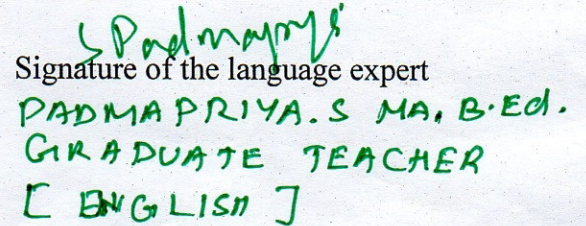 S Padmapriya
Signature of the language expert
PADMAPRIYA.S MA, B.Ed.
GRADUATE TEACHER
[ ENGLISH ]